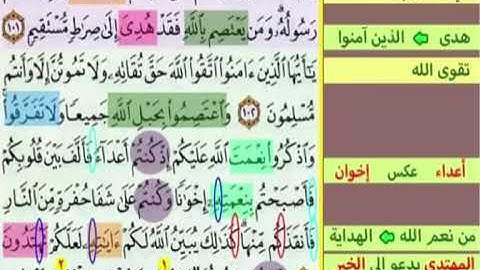 رَسُولُهُۥ وَمَن يَعْتَصِم بِٱللَّهِ فَقَدْ هُدِىَ إِلَىٰ صِرَٰطٍ مُّسْتَقِيمٍ ١٠١
يَٰٓأَيُّهَا ٱلَّذِينَ ءَامَنُوا۟ ٱتَّقُوا۟ ٱللَّهَ حَقَّ تُقَاتِهِۦ وَلَا تَمُوتُنَّ إِلَّا وَأَنتُم
مُّسْلِمُونَ ١٠٢ وَٱعْتَصِمُوا۟ بِحَبْلِ ٱللَّهِ جَمِيعًا وَلَا تَفَرَّقُوا۟
وَٱذْكُرُوا۟ نِعْمَتَ ٱللَّهِ عَلَيْكُمْ إِذْ كُنتُمْ أَعْدَآءً فَأَلَّفَ بَيْنَ قُلُوبِكُمْ
فَأَصْبَحْتُم بِنِعْمَتِهِۦٓ إِخْوَٰنًا وَكُنتُمْ عَلَىٰ شَفَا حُفْرَةٍ مِّنَ ٱلنَّارِ
فَأَنقَذَكُم مِّنْهَا كَذَٰلِكَ يُبَيِّنُ ٱللَّهُ لَكُمْ ءَايَٰتِهِۦ لَعَلَّكُمْ تَهْتَدُونَ
١ ٢
هدى ⇦ الذين آمنوا
تقوى الله
أعداء عكس إخوان
من نعم الله ⇦ الهداية
المهتدي يدعو إلى الخير